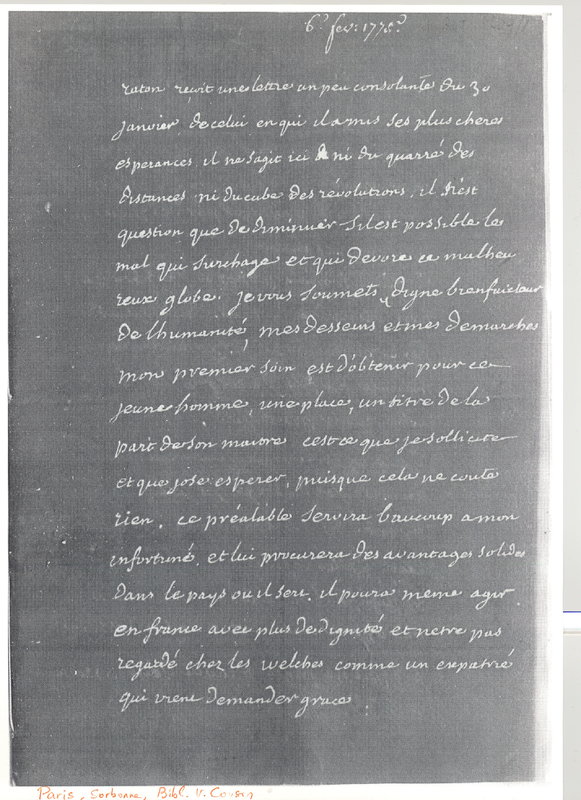 6e fev: 1775e
raton reçoit une lettre un peu consolante du 30
janvier de celui en qui il a mis ses plus cheres
esperances. il ne sagit ici ni du quarré des
distances ni du cube des révolutions. il n'est
question que de diminuer s'il est possible le
mal qui surchage et qui devore ce malheu
reux globe. je vous soumets, digne bienfaicteur
de lhumanité, mes desseins et mes demarches
mon premier soin est d'obtenir pour ce
jeune homme, une place, un titre de la
part de son maitre cest ce que je sollicite
et que jose esperer, puisque cela ne coute
rien. ce préalable servira baucoup a mon
infortuné, et lui procurera des avantages solides
dans le pays ou il sert. il poura meme agir
en france avec plus de dignité et netre pas
regardé chez les welches comme un expatrié
qui vient demander grace.
Paris, Sorbonne, Bibl. V. Cousin